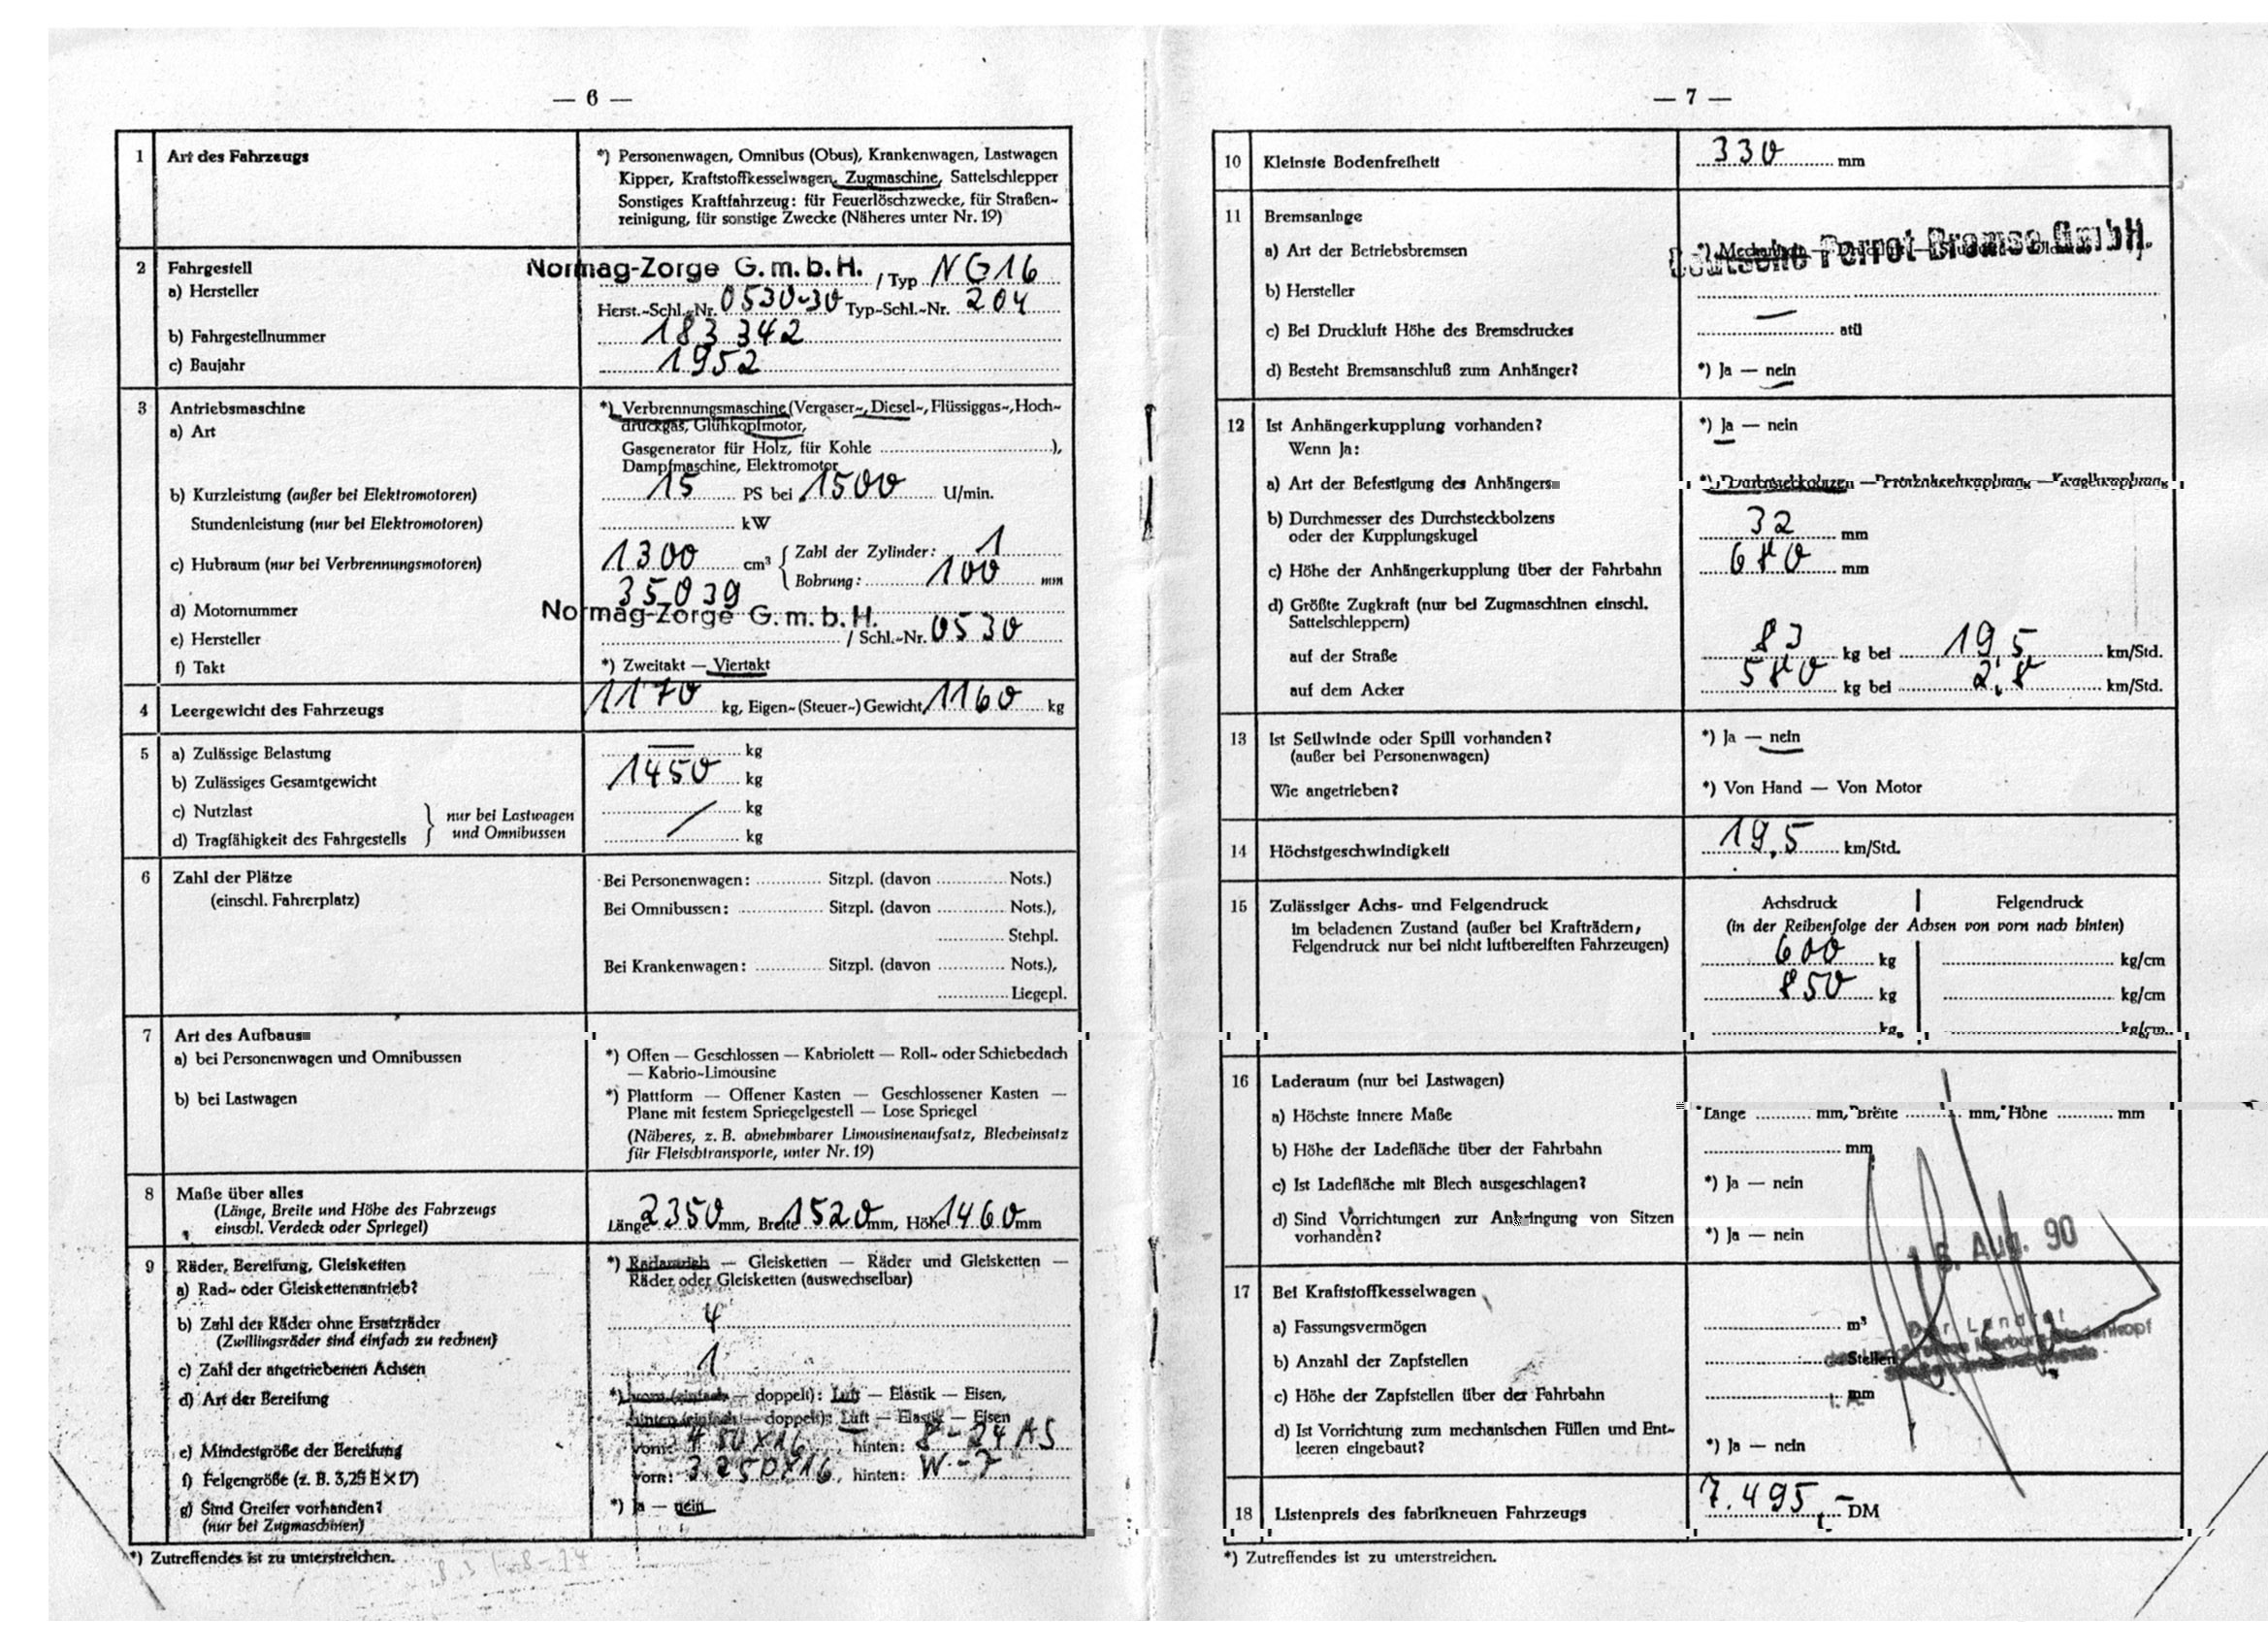 — 6 —
1 Art des Fahrzeugs
*) Personenwagen, Omnibus (Obus), Krankenwagen, Lastwagen
Kipper, Kraftstoffkesselwagen, Zugmaschine, Sattelschlepper
Sonstiges Kraftfahrzeug: für Feuerlöschzwecke, für Straßen-
reinigung, für sonstige Zwecke (Näheres unter Nr. 19)
2 Fahrgestell
a) Hersteller Normag-Zorge G.m.b.H. / Typ NG16
Herst.-Schl.-Nr. 0530-30 Typ-Schl.-Nr. 204
b) Fahrgestellnummer 183 342
c) Baujahr 1952
3 Antriebsmaschine
a) Art
*) Verbrennungsmaschine (Vergaser-, Diesel-, Flüssiggas-, Hoch-
druckgas, Glühkopfmotor,
Gasgenerator für Holz, für Kohle ),
Dampfmaschine, Elektromotor
b) Kurzleistung (außer bei Elektromotoren) 15 PS bei 1500 U/min.
Stundenleistung (nur bei Elektromotoren) kW
c) Hubraum (nur bei Verbrennungsmotoren) 1300 cm³ { Zahl der Zylinder: 1
Bohrung: 100 mm
d) Motornummer 35039
e) Hersteller Normag-Zorge G.m.b.H. / Schl.-Nr. 0530
f) Takt *) Zweitakt — Viertakt
4 Leergewicht des Fahrzeugs 1170 kg, Eigen-(Steuer-)Gewicht 1160 kg
5 a) Zulässige Belastung — kg
b) Zulässiges Gesamtgewicht 1450 kg
c) Nutzlast } nur bei Lastwagen / kg
d) Tragfähigkeit des Fahrgestells und Omnibussen kg
6 Zahl der Plätze
(einschl. Fahrerplatz)
Bei Personenwagen: Sitzpl. (davon Nots.)
Bei Omnibussen: Sitzpl. (davon Nots.),
Stehpl.
Bei Krankenwagen: Sitzpl. (davon Nots.),
Liegepl.
7 Art des Aufbaus
a) bei Personenwagen und Omnibussen
*) Offen — Geschlossen — Kabriolett — Roll- oder Schiebedach
— Kabrio-Limousine
b) bei Lastwagen
*) Plattform — Offener Kasten — Geschlossener Kasten —
Plane mit festem Spriegelgestell — Lose Spriegel
(Näheres, z. B. abnehmbarer Limousinenaufsatz, Blecheinsatz
für Fleischtransporte, unter Nr. 19)
8 Maße über alles
(Länge, Breite und Höhe des Fahrzeugs
einschl. Verdeck oder Spriegel)
Länge 2350 mm, Breite 1520 mm, Höhe 1460 mm
9 Räder, Bereifung, Gleisketten
a) Rad- oder Gleiskettenantrieb?
*) Radantrieb — Gleisketten — Räder und Gleisketten —
Räder oder Gleisketten (auswechselbar)
b) Zahl der Räder ohne Ersatzräder 4
(Zwillingsräder sind einfach zu rechnen)
c) Zahl der angetriebenen Achsen 1
d) Art der Bereifung
*) vorn (einfach — doppelt): Luft — Elastik — Eisen,
hinten (einfach — doppelt): Luft — Elastik — Eisen
e) Mindestgröße der Bereifung vorn: 450x16 , hinten: 8-24 AS
f) Felgengröße (z. B. 3,25 E×17) vorn: 3.25Dx16, hinten: W-7
g) Sind Greifer vorhanden? *) Ja — nein
(nur bei Zugmaschinen)
*) Zutreffendes ist zu unterstreichen.
— 7 —
10 Kleinste Bodenfreiheit 330 mm
11 Bremsanlage
a) Art der Betriebsbremsen
Deutsche Perrot-Bremse GmbH.
b) Hersteller
c) Bei Druckluft Höhe des Bremsdruckes — atü
d) Besteht Bremsanschluß zum Anhänger? *) Ja — nein
12 Ist Anhängerkupplung vorhanden? *) Ja — nein
Wenn Ja:
a) Art der Befestigung des Anhängers *) Durchsteckbolzen
b) Durchmesser des Durchsteckbolzens
oder der Kupplungskugel 32 mm
c) Höhe der Anhängerkupplung über der Fahrbahn 680 mm
d) Größte Zugkraft (nur bei Zugmaschinen einschl.
Sattelschleppern)
auf der Straße 83 kg bei 19,5 km/Std.
auf dem Acker 580 kg bei 2,8 km/Std.
13 Ist Seilwinde oder Spill vorhanden? *) Ja — nein
(außer bei Personenwagen)
Wie angetrieben? *) Von Hand — Von Motor
14 Höchstgeschwindigkeit 19,5 km/Std.
15 Zulässiger Achs- und Felgendruck
im beladenen Zustand (außer bei Krafträdern,
Felgendruck nur bei nicht luftbereiften Fahrzeugen)
Achsdruck | Felgendruck
(in der Reihenfolge der Achsen von vorn nach hinten)
600 kg kg/cm
850 kg kg/cm
kg kg/cm
16 Laderaum (nur bei Lastwagen)
a) Höchste innere Maße Länge mm, Breite mm, Höhe mm
b) Höhe der Ladefläche über der Fahrbahn mm
c) Ist Ladefläche mit Blech ausgeschlagen? *) Ja — nein
d) Sind Vorrichtungen zur Anbringung von Sitzen
vorhanden? *) Ja — nein
Aug. 90
17 Bei Kraftstoffkesselwagen
a) Fassungsvermögen m³
Der Landrat
b) Anzahl der Zapfstellen Stellen
c) Höhe der Zapfstellen über der Fahrbahn mm
d) Ist Vorrichtung zum mechanischen Füllen und Ent-
leeren eingebaut? *) Ja — nein
18 Listenpreis des fabrikneuen Fahrzeugs 7.495,— DM
*) Zutreffendes ist zu unterstreichen.